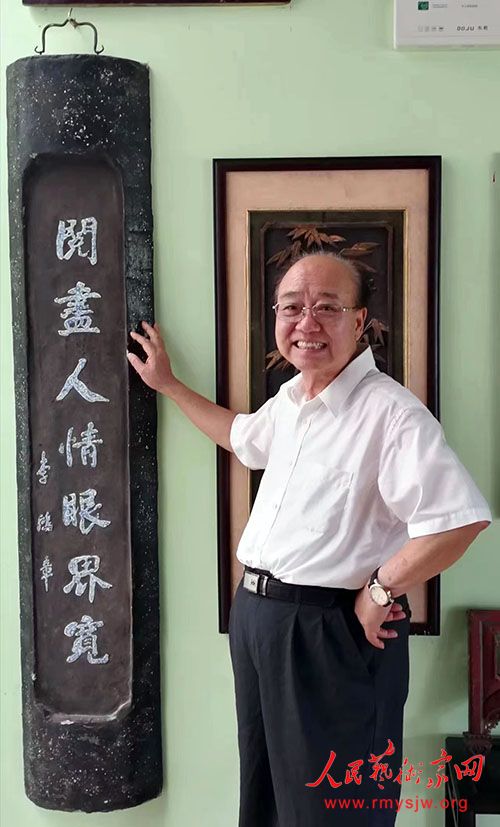 閱盡人情眼界寬
李鴻章
人民艺术家网
www.rmysjw.org